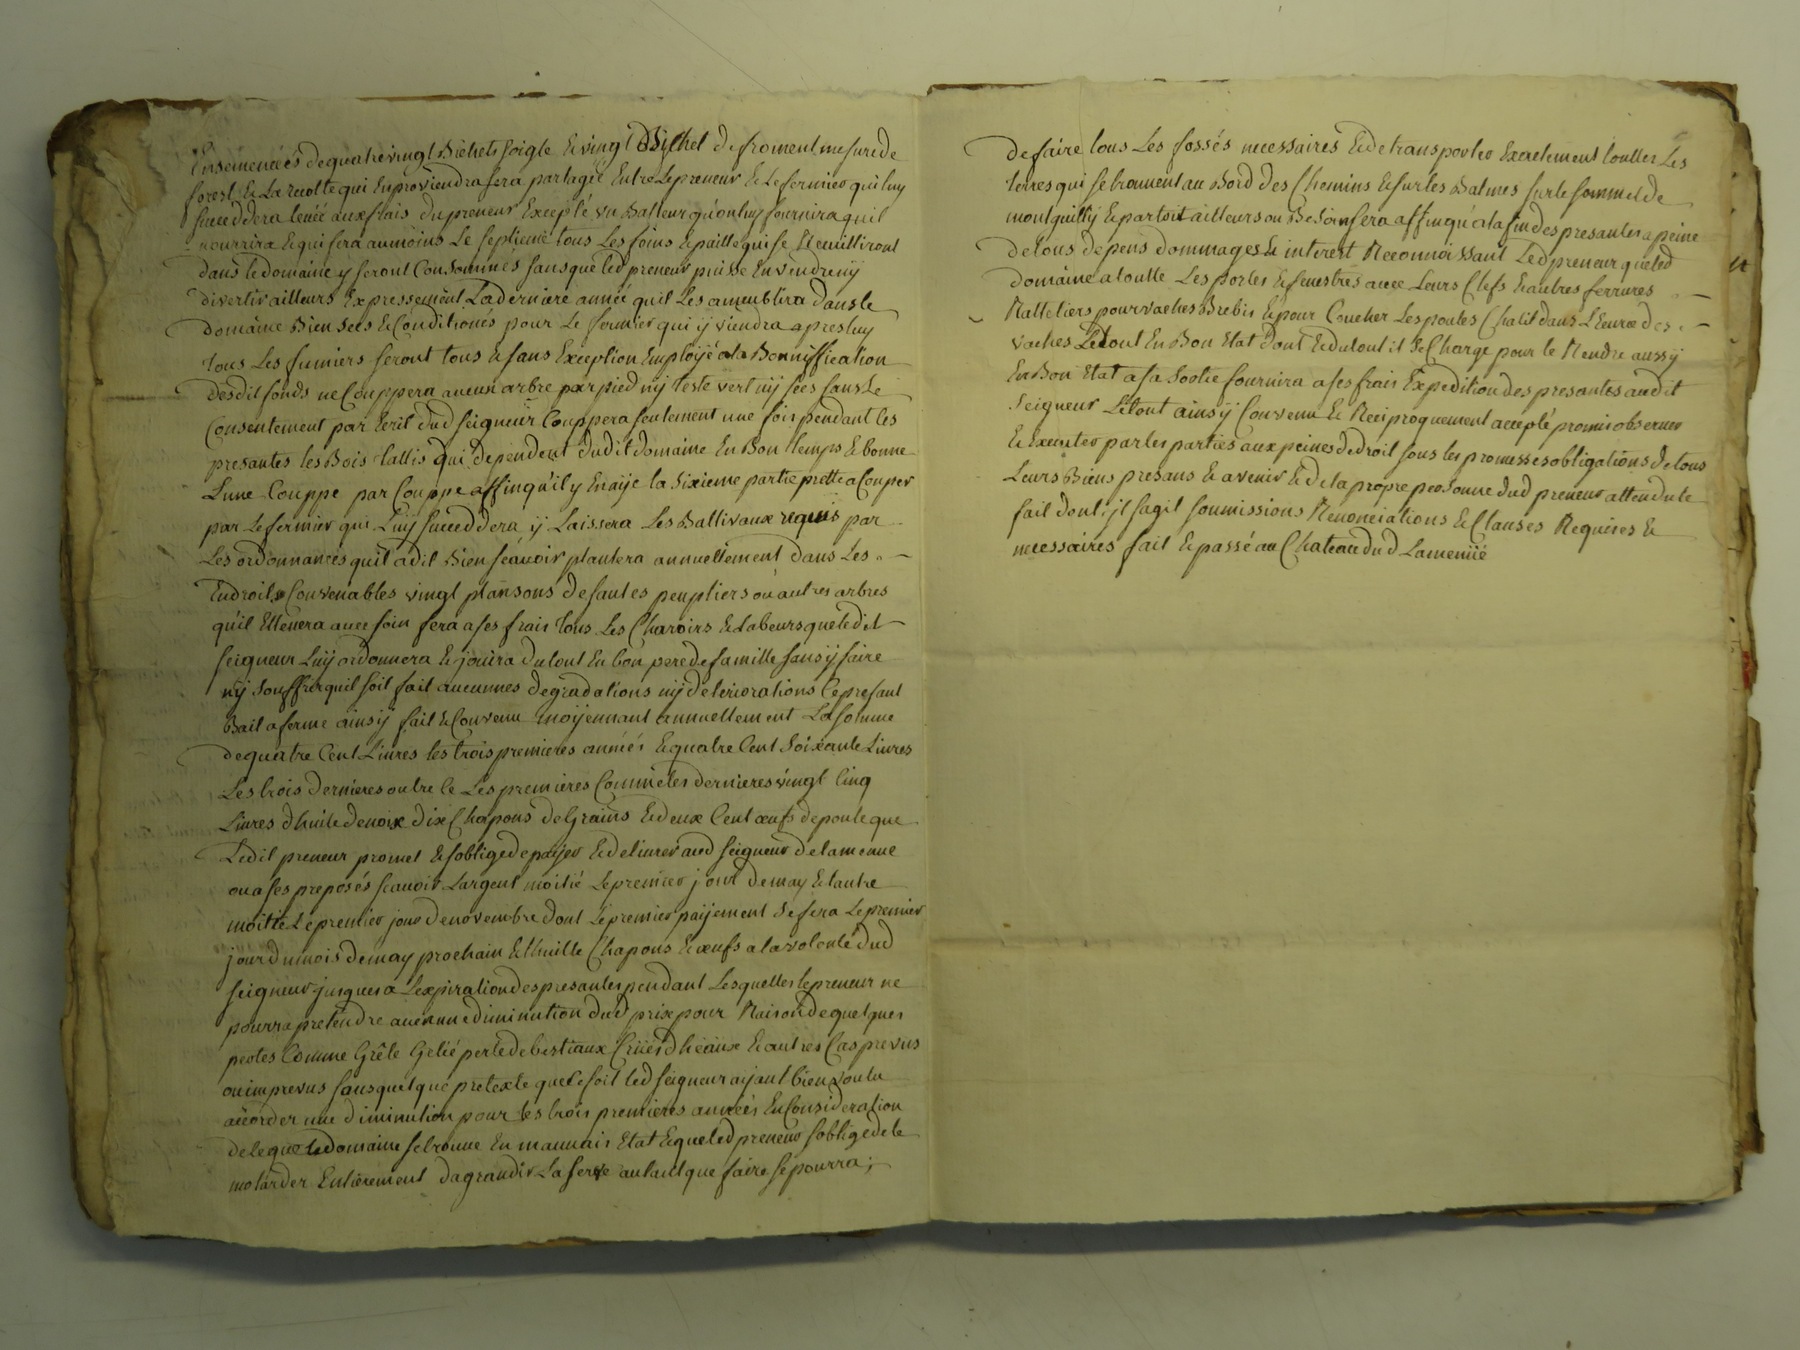 Ensemencéés de quatrevingt Bichets soigle & vingt Bichet de froment mesure de
forest & La recolte qui En proviendra sera partagée Entre Le preneur & Le fermier qui luy
succeddera levéé aux frais du preneur Excepté un Batteur qu'on luy fournira quil
nourrira & qui sera aumoins Le septieme tous Les foins & paille qui se Recuilliront
dans le domaine y seront Consommés sans que led preneur puisse En vendre nÿ
divertir ailleurs Expressement La derniere annéé quil Les ameublira dans le
domaine Bien sées & Conditionés pour Le fermier qui ÿ viendra apres luy
tous Les fumiers seront tous & sans Exception Emploÿé a la Bonniffication
desdit fonds ne Couppera aucun arbre par pied nÿ teste vert nÿ sées sans Le
Consentement par Ecrit dud seigneur Couppera seulement une fois pendant les
presantes les Bois tallis qui dependent dudit domaine En Bon temps & bonne
Lune Couppe par Couppe affinqu'il y En aije la sixieme partie prette a Couper
par Le fermier qui Luy succeddera ÿ Laissera Les Ballivaux requis par
Les ordonnances quil a dit Bien scavoir plantera annuellement dans Les
Endroits Convenables vingt plansons de saules peupliers ou autres arbres
qu'il Ellevera avec soin fera a ses frais tous Les Charois & Labeurs que ledit
seigneur Luy ordonnera & jouira du tout En bon pere de famille sans ÿ faire
nÿ souffrir quil soit fait aucunnes degradations nÿ deteriorations Le presant
Bail a ferme ainsÿ fait & Convenu moÿennant annuellement La somme
de quatre Cent Livres les trois premieres annéés & quatre Cent soixante Livres
Les trois dernieres outre ce Les premieres Comme les dernieres vingt Cinq
Livres dhuile de noix dix Chapons de Grains & deux Cent œufs de poule que
Ledit preneur promet & soblige de paÿer & de livrer aud seigneur de Lamenüe
ou a ses preposés scavoir Largent moitié Le premier jour de may & Lautre
moitié Le premier jour de novembre dont Le premier paÿement se fera Le premier
jour du mois de may prochain & Lhuille Chapons & œufs a la volonté dud
seigneur jusques a Lexpiration des presantes pendant Lesquelles le preneur ne
pourra pretendre aucunne diminution dud prix pour Raison de quelques
pertes Comme Grêle Geléé perte de bestiaux Crües dheaux & autres Cas prevus
ou imprevus sous quelque pretexte que Ce soit led seigneur aÿant bien voulu
accorder une diminution pour Les trois premieres annéés En Consideration
de Ce que Le domaine se trouve En mauvais Etat & que led preneur soblige de le
motarder Entierement dagrandir La serve autant que faire se pourra;
de faire tous Les fossés necessaires & de transporter Exactement touttes Les
terres qui se trouvent au Bord des Chemins & sur les Balmes sur le sommet de
montguillÿ & partout ailleurs ou Besoin sera affinqu'a la fin des presantes a peine
de tous depens dommages & interest Reconnoissant Led preneur que led
domaine a toutte Les portes & fenestres avec Leurs Clefs & autres ferrures
Ratteliers pour vaches Brebis & pour Coucher Les poules Chalit dans L'Ecurie des
vaches Le tout En Bon Etat dont & du tout il se Charge pour le Rendre aussÿ
En Bon Etat a sa sortie fournira a ses frais Expedition des presantes audit
seigneur Le tout ainsÿ Convenu & Reciproquement accepté promis observer
& Executer par les parties aux peines de droit sous les promesses obligations de tous
Leurs Biens presans & avenir & de la propre personne dud preneur attendu le
fait dont jl sagit soumissions Renonciations & Clauses Requises &
necessaires fait & passé au Chateau dud Lamenüe